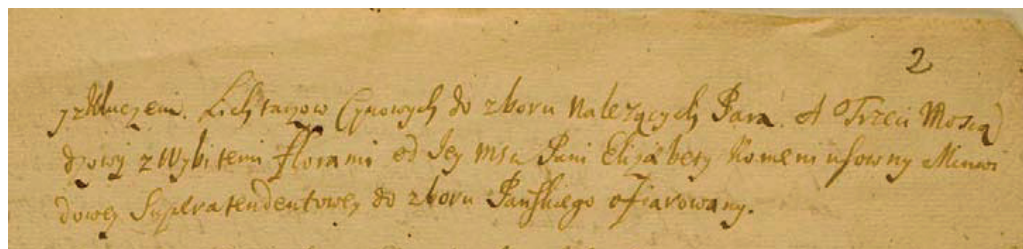 2
y z kluczem. Lichtarzow Cynowych do zboru należących Para. A Trzeci Mosią
dzowy z Wybitemi florami od Jey Msci Pani Elizabety Komeniusowny Minwi
dowey Superatendentowey do zboru Pańskiego ofiarowany.